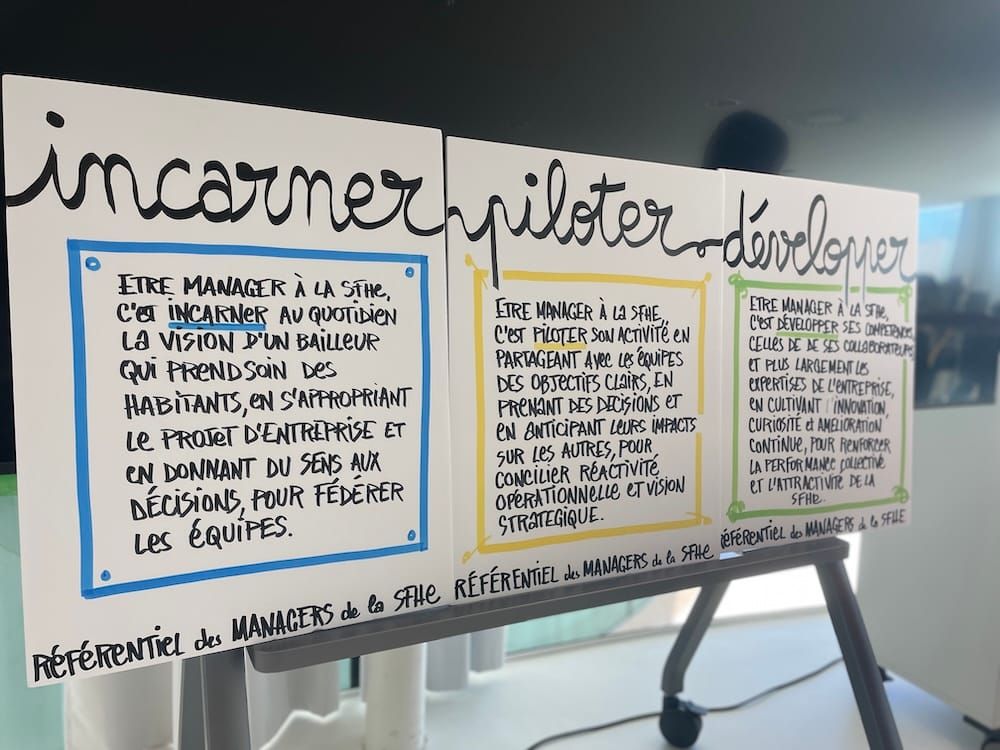 incarner
ETRE MANAGER À LA SFHE,
C'EST INCARNER AU QUOTIDIEN
LA VISION D'UN BAILLEUR
QUI PREND SOIN DES
HABITANTS, EN S'APPROPRIANT
LE PROJET D'ENTREPRISE ET
EN DONNANT DU SENS AUX
DÉCISIONS, POUR FÉDÉRER
LES ÉQUIPES.
RÉFÉRENTIEL des MANAGERS de la SFHE
piloter
ETRE MANAGER À LA SFHE,
C'EST PILOTER SON ACTIVITÉ EN
PARTAGEANT AVEC LES ÉQUIPES
DES OBJECTIFS CLAIRS, EN
PRENANT DES DECISIONS ET
EN ANTICIPANT LEURS IMPACTS
SUR LES AUTRES, POUR
CONCILIER RÉACTIVITÉ
OPÉRATIONNELLE ET VISION
STRATEGIQUE.
RÉFÉRENTIEL des MANAGERS de la SFHE
développer
ETRE MANAGER À LA SFHE,
C'EST DÉVELOPPER SES COMPETENCES
CELLES DE DE SES COLLABORATEURS
ET PLUS LARGEMENT LES
EXPERTISES DE L'ENTREPRISE,
EN CULTIVANT L'INNOVATION,
CURIOSITÉ ET AMELIORATION
CONTINUE, POUR RENFORCER
LA PERFORMANCE COLLECTIVE
ET L'ATTRACTIVITÉ DE LA
SFHE.
RÉFÉRENTIEL des MANAGERS de la SFHE